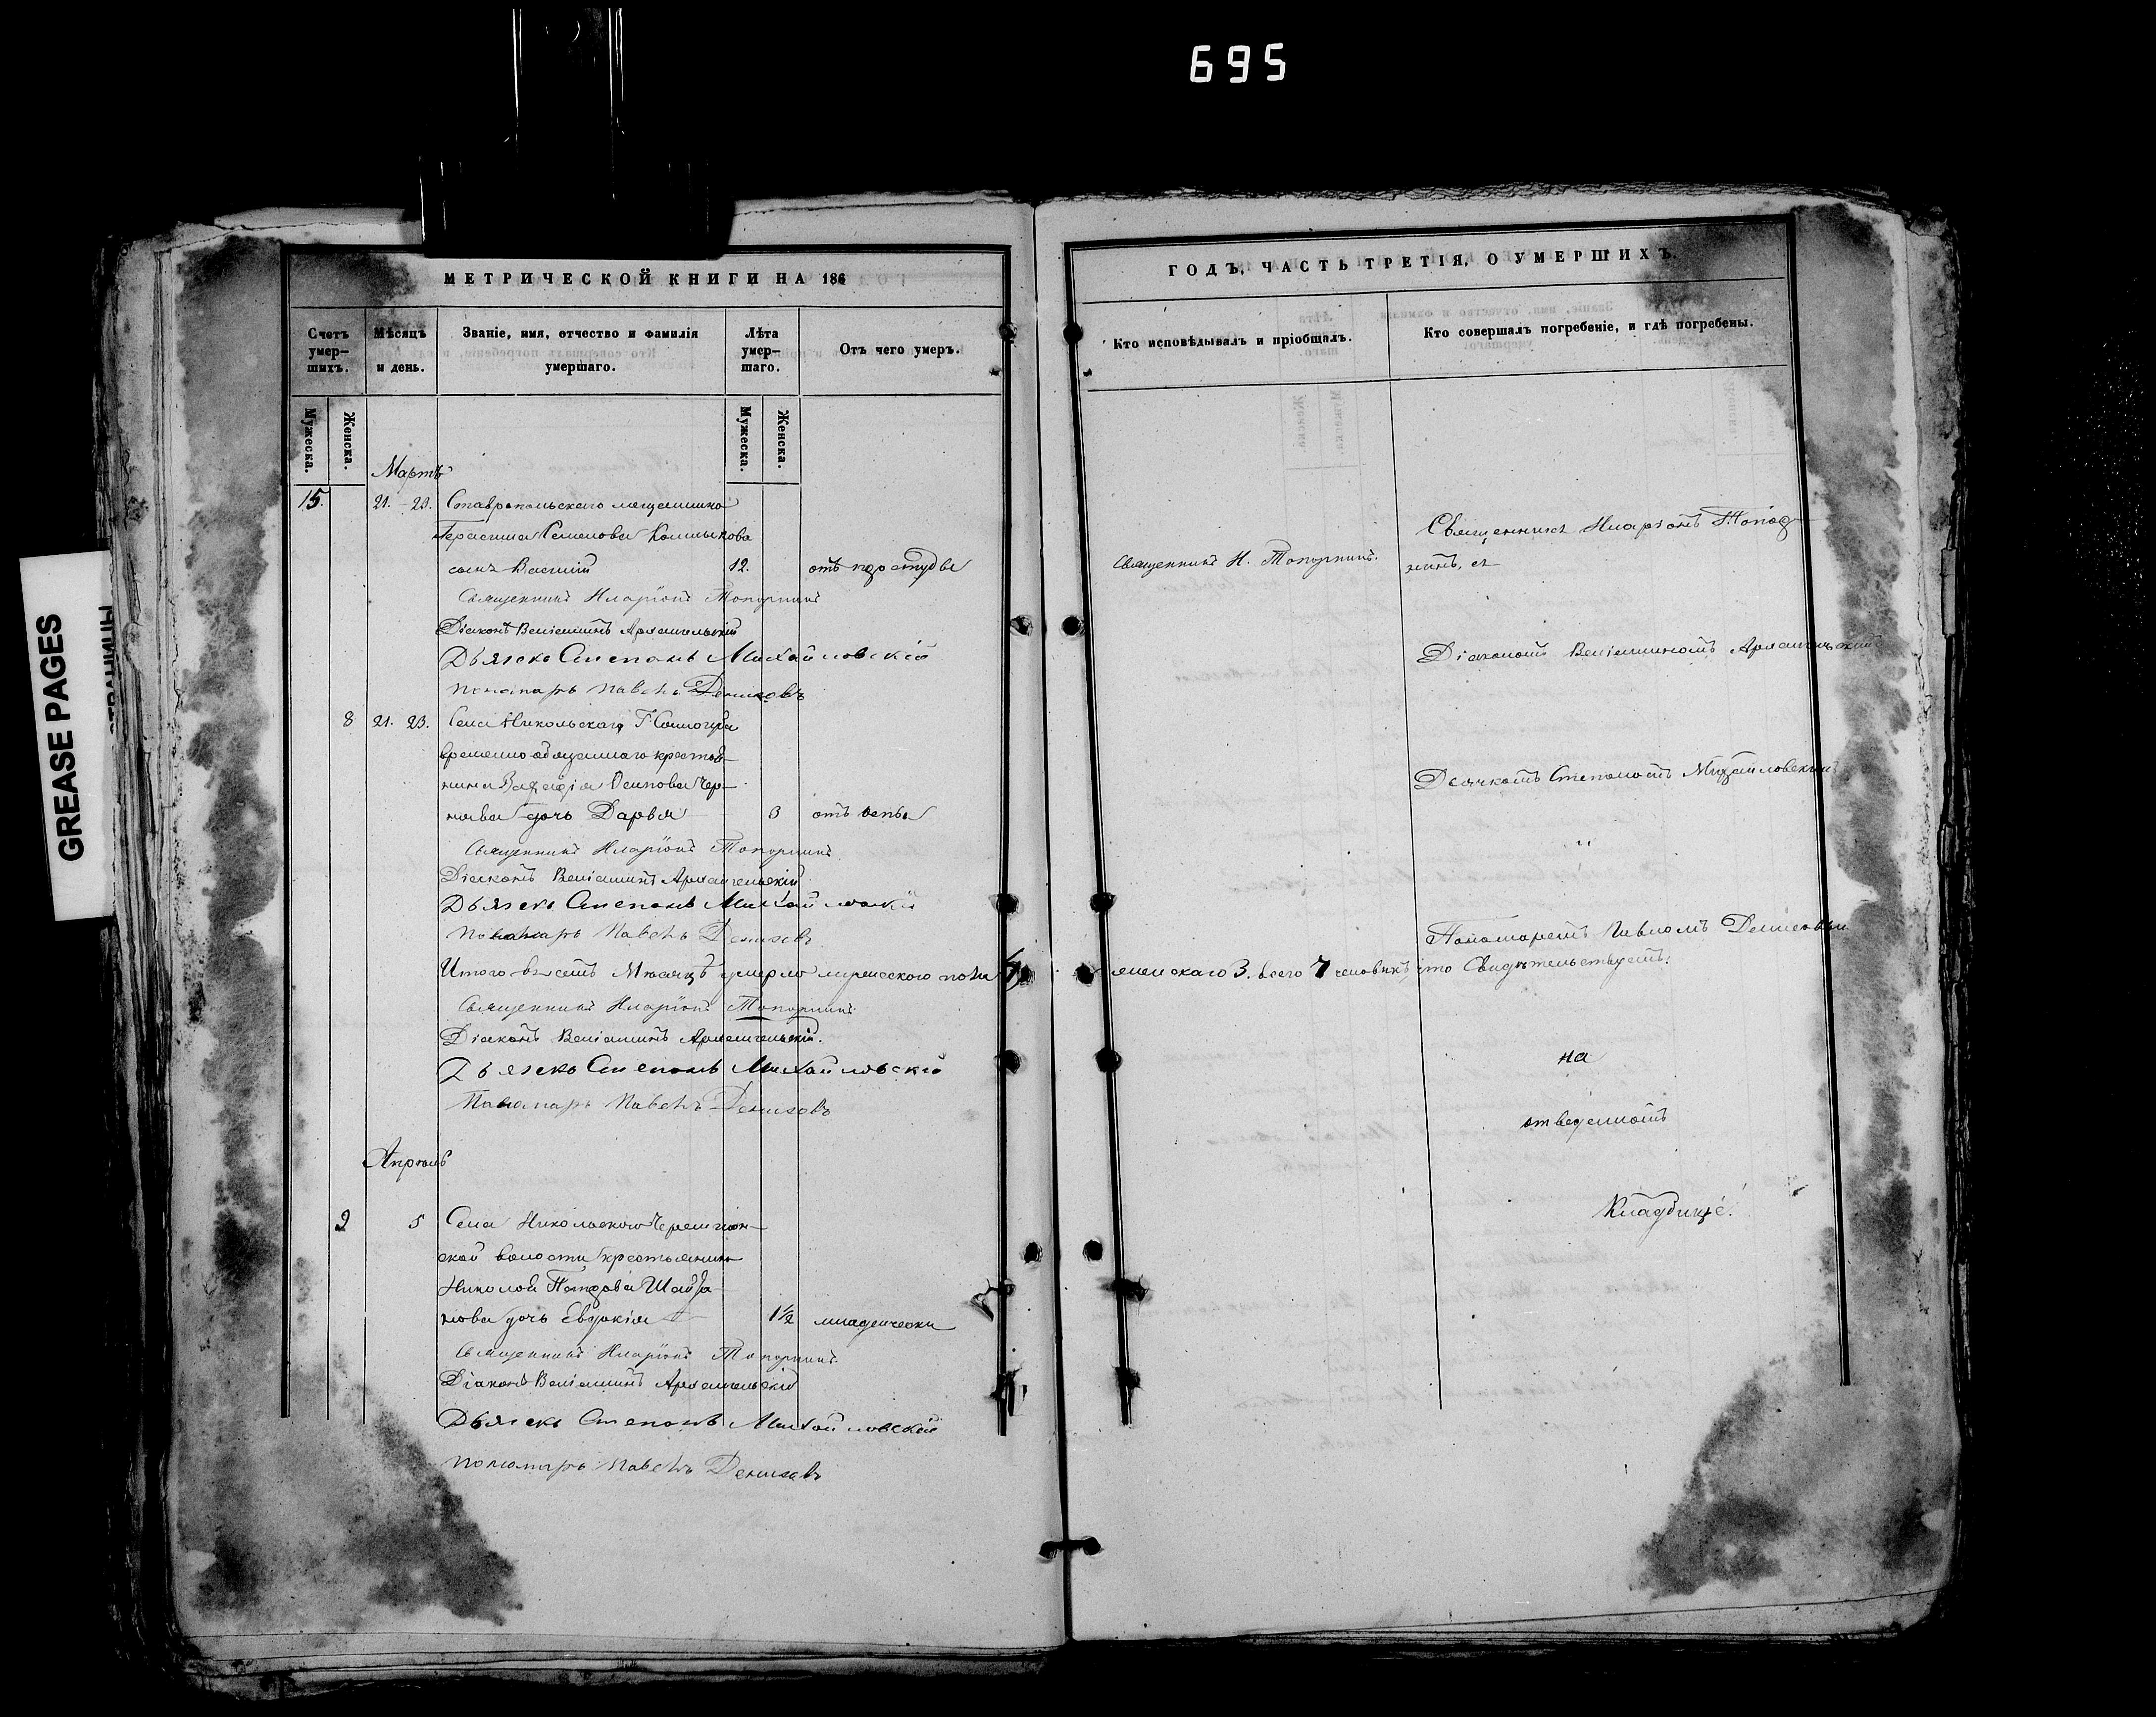 695
GREASE PAGES
СТРАНИЦЫ
МЕТРИЧЕСКОЙ КНИГИ НА 186
Счетъ умер-шихъ.
Мѣсяцъ и день.
Званіе, имя, отчество и фамилія умершаго.
Лѣта умер-шаго.
Отъ чего умеръ.
Мужеска.
Женска.
Мужеска.
Женска.
Мартъ
15. 21. - 23. Ставропольскаго мещанина
Герасима Семенова
сынъ Василій 12. отъ простуды
Священникъ Иларіонъ Топорнинъ
Діаконъ Веніаминъ Архангельскій
Дьячекъ Степанъ Михайловскій
Пономарь Павелъ Денисовъ
8 21. 23. Села Никольскаго Г.
временно обязаннаго крестья-
нина Осипова Чер-
нова дочь Дарья 3 отъ оспы
Священникъ Иларіонъ Топорнинъ
Діаконъ Веніаминъ Архангельскій
Дьячекъ Степанъ Михайловскій
Пономарь Павелъ Денисовъ
Итого въ семъ Мѣсяцѣ умерло мужескаго пола
Священникъ Иларіонъ Топорнинъ
Діаконъ Веніаминъ Архангельскій.
Дьячекъ Степанъ Михайловскій
Пономарь Павелъ Денисовъ
Апрель
2 5 Села Никольскаго Черемшан-
ской волости крестьянина
Николай
нова дочь Евдокія 1½ младенчески
Священникъ Иларіонъ Топорнинъ
Діаконъ Веніаминъ Архангельскій
Дьячекъ Степанъ Михайловскій
Пономарь Павелъ Денисовъ
ГОДЪ, ЧАСТЬ ТРЕТІЯ, О УМЕРШИХЪ.
Кто исповѣдывалъ и пріобщалъ.
Кто совершалъ погребеніе, и гдѣ погребены.
Священникъ Иларіонъ Топор-
Священникъ И. Топорнинъ. нинъ, съ
Діакономъ Веніаминомъ Архангельскимъ
Дьячкомъ Степаномъ Михайловскимъ
и
Пономаремъ Павломъ Денисовымъ
женскаго 3. всего 7 человѣкъ, что Свидѣтельствуетъ:
на
отведенномъ
Кладбищѣ.